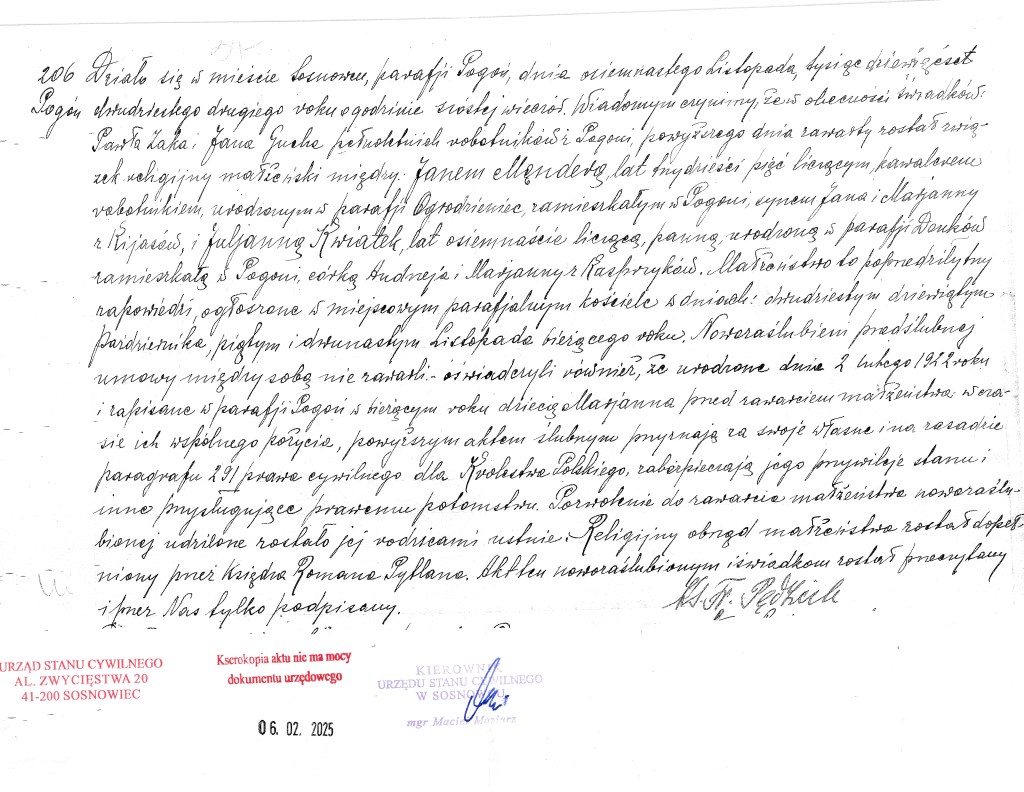 206 Działo się w mieście Sosnowcu, parafji Pogoń, dnia osiemnastego Listopada, tysiąc dziewięćset
Pogoń dwudziestego drugiego roku o godzinie szóstej wieczór. Wiadomym czynimy, że w obecności świadków:
Pawła Żaka i Jana Gucha pełnoletnich robotników z Pogoni, powyższego dnia zawarty został zwią-
zek religijny małżeński między: Janem Menderą, lat trzydzieści pięć liczącym, kawalerem
robotnikiem, urodzonym w parafji Ogrodzieniec, zamieszkałym w Pogoni, synem Jana i Marjanny
z Kijasów, i Juljanną Kwiatek, lat osiemnaście liczącą, panną, urodzoną w parafji
zamieszkałą w Pogoni, córką Andrzeja i Marjanny z Kasprzyków. Małżeństwo to poprzedziły trzy
zapowiedzi, ogłoszone w miejscowym parafjalnym kościele w dniach: dwudziestym dziewiątym
Października, piątym i dwunastym Listopada bieżącego roku. Nowozaślubieni przedślubnej
umowy między sobą nie zawarli - oświadczyli również, że urodzone dnia 2 lutego 1922 roku
i zapisane w parafji Pogoń w bieżącym roku dziecię Marjanna przed zawarciem małżeństwa w cza-
sie ich wspólnego pożycia, powyższym aktem ślubnym przyznają za swoje własne i na zasadzie
paragrafu 291 prawa cywilnego dla Królestwa Polskiego, zabezpieczają jego przywileje stanu i
inne przysługujące prawemu potomstwu. Pozwolenie do zawarcia małżeństwa nowozaślu-
bionej udzilone zostało jej rodzicami ustnie. Religijny obrzęd małżeństwa został dopeł-
niony przez Księdza Romana Pytlana. Akt ten nowozaślubionym i świadkom został przeczytany
i przez Nas tylko podpisany.
Ks. Fr.
URZĄD STANU CYWILNEGO
AL. ZWYCIĘSTWA 20
41-200 SOSNOWIEC
Kserokopia aktu nie ma mocy
dokumentu urzędowego
06. 02. 2025
KIEROWNIK
URZĘDU STANU CYWILNEGO
W SOSNOWCU
mgr Maciej